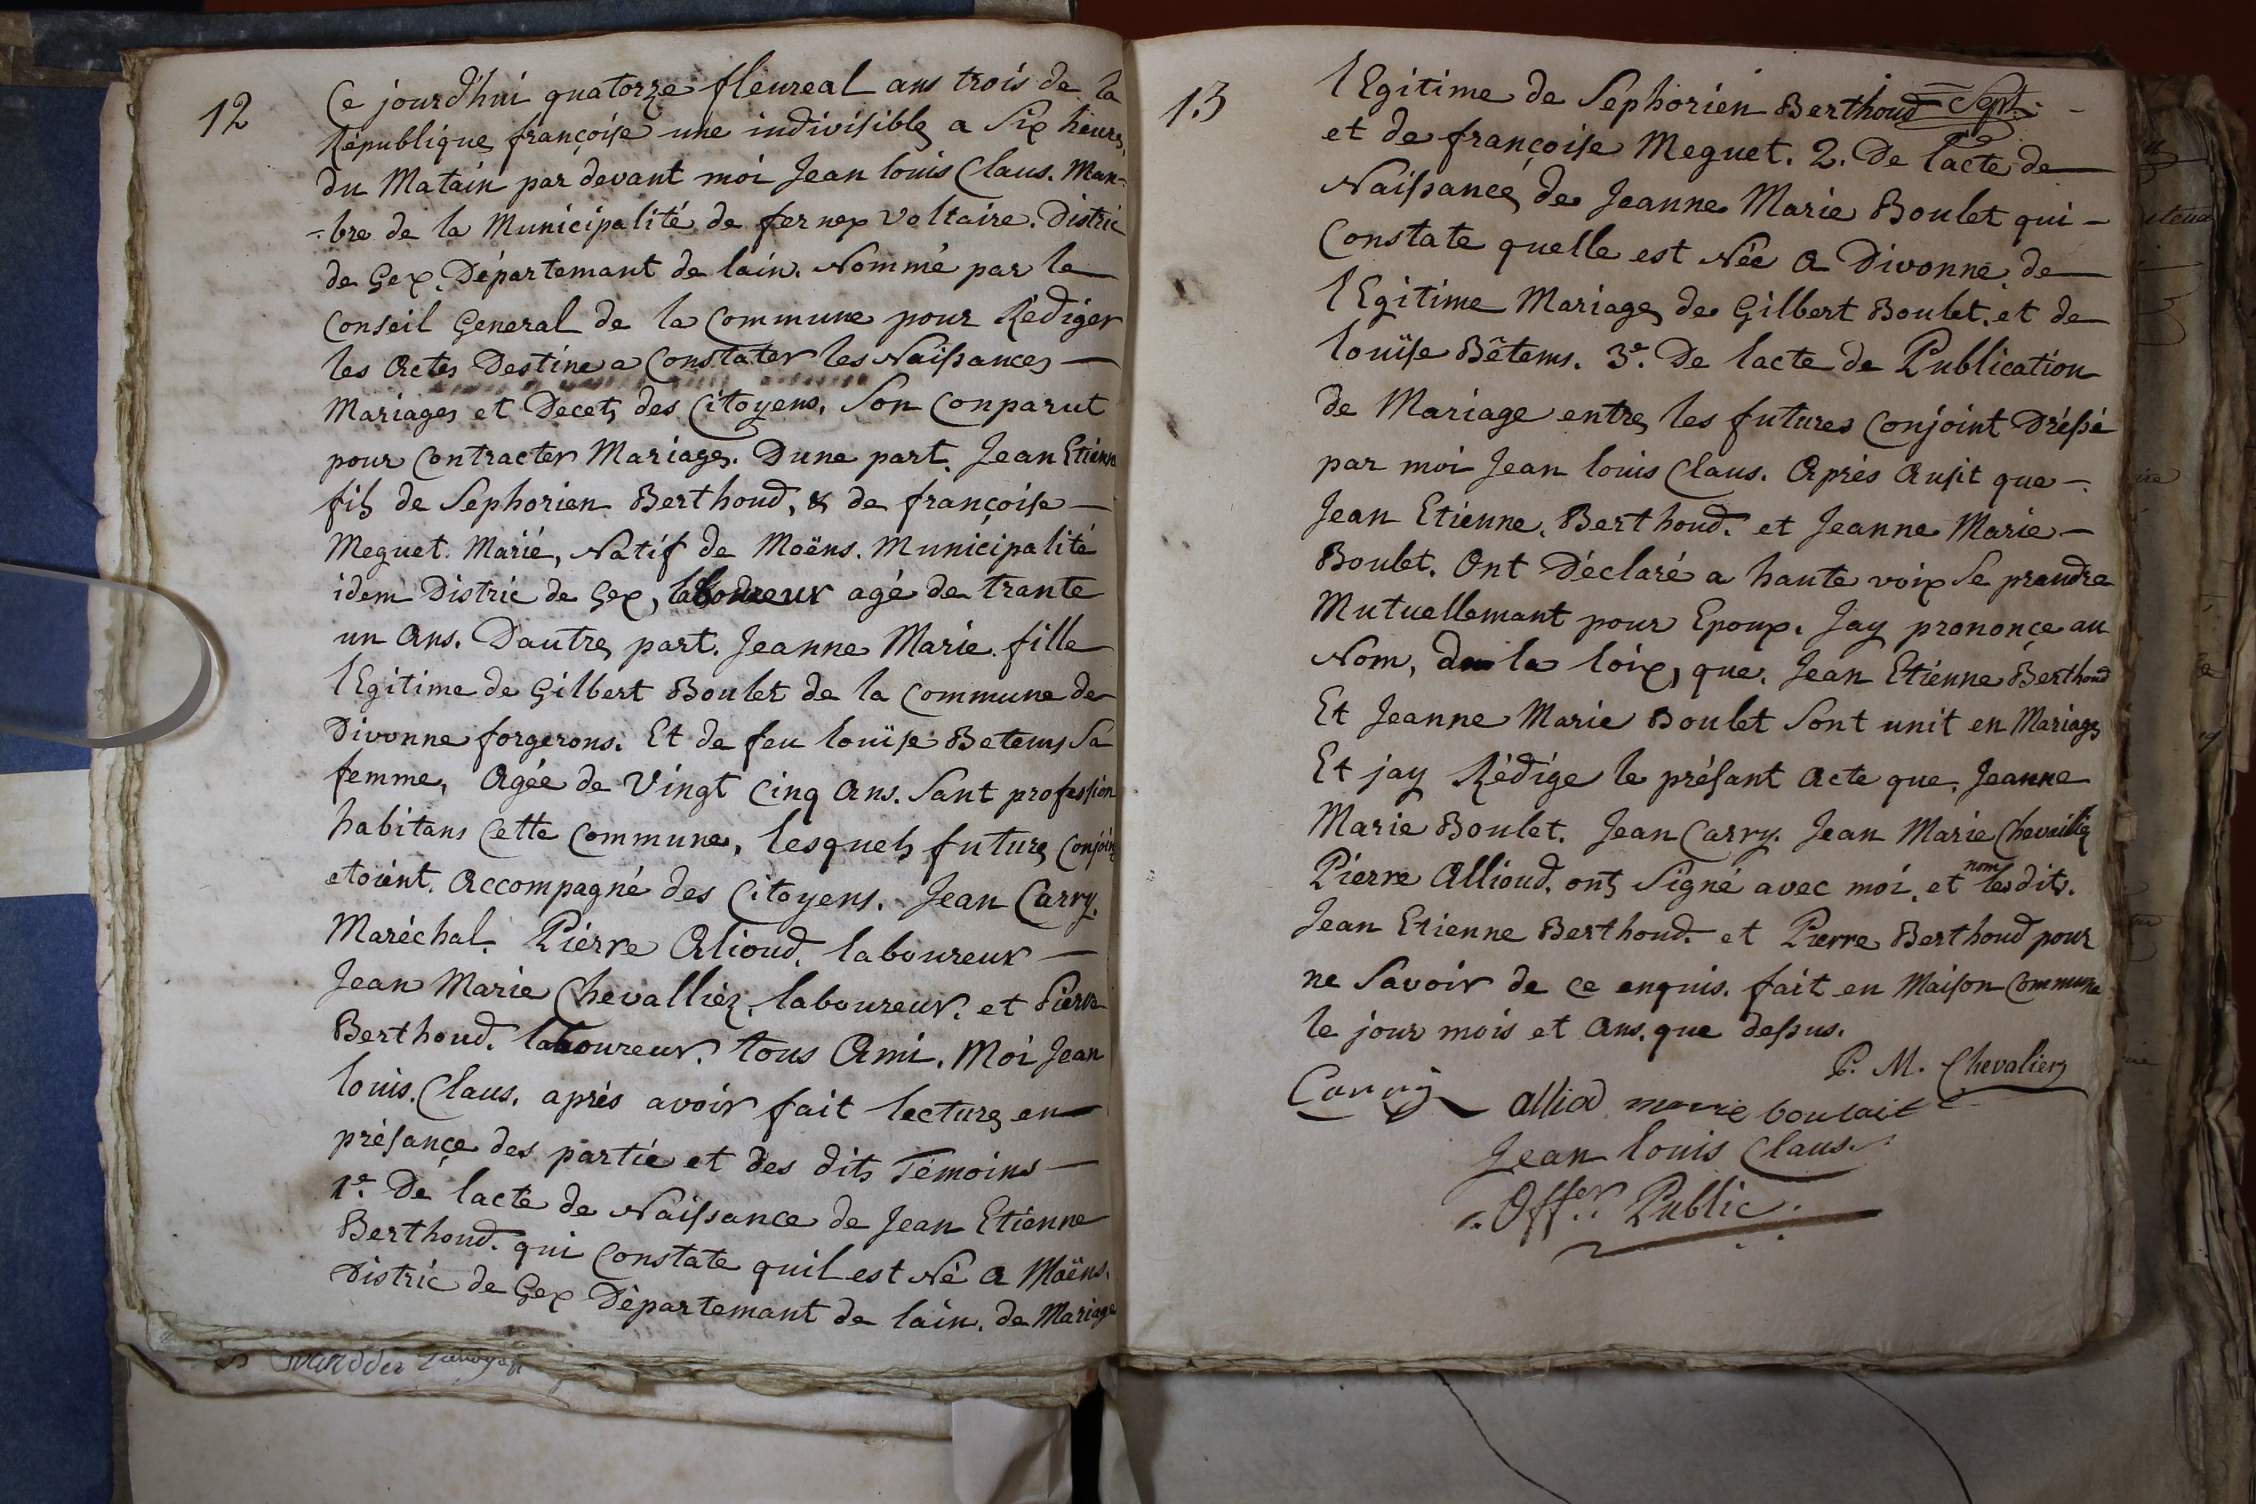 12
Ce jourd'hui quatorze fleureal ans trois de la
République françoise une indivisible a Six heures
du Matain par devant moi Jean louis Claus. Man-
-bre de la Municipalité de fernex Voltaire. Distric
de Gex. Département de lain. Nommé par le
Conseil General de la Commune pour Rédiger
les Actes Destine a Constater les Naissances
Mariages et Decets des Citoyens. Son Conparut
pour Contracter Mariage. Dune part. Jean Etienne
fils de Sephorien Berthoud, & de françoise
Meguet. Marié, Natif de Moëns. Municipalité
idem Distric de Gex, laboureur agé de trante
un Ans. Dautre part. Jeanne Marie fille
lEgitime de Gilbert Boulet de la Commune de
Divonne forgerons. Et de feu louïse Betems Sa
femme, Agée de Vingt Cinq Ans. Sant profession
habitans Cette Commune, lesquels futurs Conjoin
etoient. Accompagné des Citoyens. Jean Carry.
Maréchal. Piérre Alioud. laboureur
Jean Marie Chevalliéz, laboureur. et Pierre
Berthoud. laboureur. tous Ami. Moi Jean
louis. Claus. aprés avoir fait lecture en
présançe des partié et des dits Témoins
1.e De lacte de Naissance de Jean Etienne
Berthoud. qui Constate quil est Né a Moëns.
Distric de Gex Département de lain. de Mariage
13
lEgitime de Sephorien Berthoud Sept.
et de françoise Meguet. 2. De lacte de
Naissance de Jeanne Marie Boulet qui
Constate quelle est Née a Divonne de
lEgitime Mariage de Gilbert Boulet. et de
louïse Bêtems. 3.e De lacte de Publication
de Mariage entre les futures Conjoint Dréssé
par moi Jean louis Claus. Aprés Ausit que
Jean Etienne. Berthoud. et Jeanne Marie
Boulet. Ont Déclaré a haute voix Se prandre
Mutuellemant pour Epoux. Jay prononçe au
Nom, de la loix, que. Jean Etienne Berthoud
Et Jeanne Marie Boulet Sont unit en Mariage
Et jay Rédige le présant Acte que. Jeanne
Marie Boulet. Jean Carry. Jean Marie Chevalliez
Piérre Allioud. onts Signé avec moi. et nom les dits.
Jean Etienne Berthoud. et Pierre Berthoud pour
ne Savoir de ce enquis. fait en Maison Commune
le jour mois et Ans. que dessus.
M. Chevaliez
Carry alliod marie boulait
Jean louis Claus.
Off.er Public.